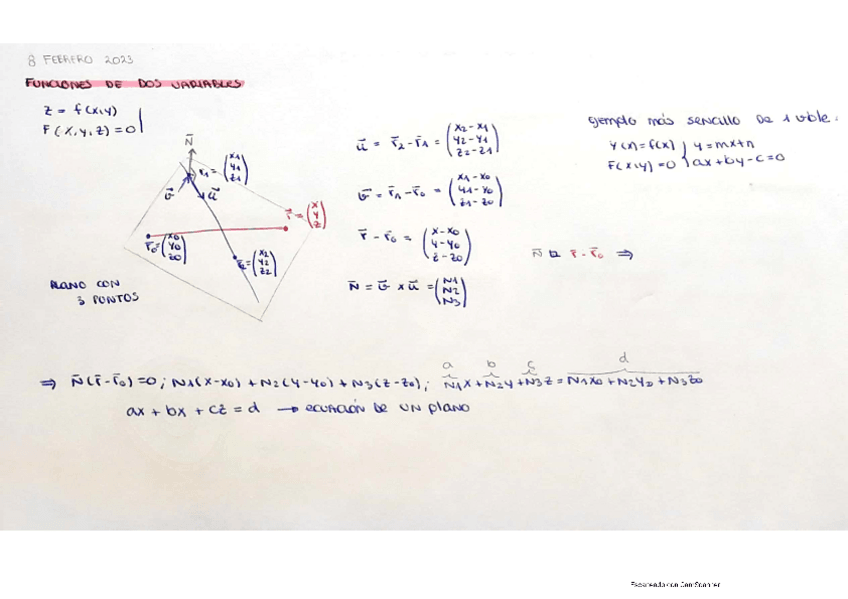 8 FEBRERO 2023
FUNCIONES DE DOS VARIABLES
z = f(x,y)
F(x,y,z) = 0
N̄
r̄1 = (x1 y1 z1)
v̄
ū
r̄ = (x y z)
r̄0 = (x0 y0 z0)
r̄2 = (x2 y2 z2)
PLANO CON
3 PUNTOS
ū = r̄2 - r̄1 = (x2-x1 y2-y1 z2-z1)
v̄ = r̄1 - r̄0 = (x1-x0 y1-y0 z1-z0)
r̄ - r̄0 = (x-x0 y-y0 z-z0)
N̄ = v̄ x ū = (N1 N2 N3)
ejemplo más sencillo de 1 vble.
y(x)=f(x) y=mx+n
F(x,y)=0 ax+by-c=0
N̄ ⊾ r̄-r̄0 ⇒
a b c d
⇒ N̄(r̄-r̄0)=0; N1(x-x0)+N2(y-y0)+N3(z-z0); N1x+N2y+N3z=N1x0+N2y0+N3z0
ax + bx + cz = d → ECUACIÓN DE UN PLANO
Escaneado con CamScanner